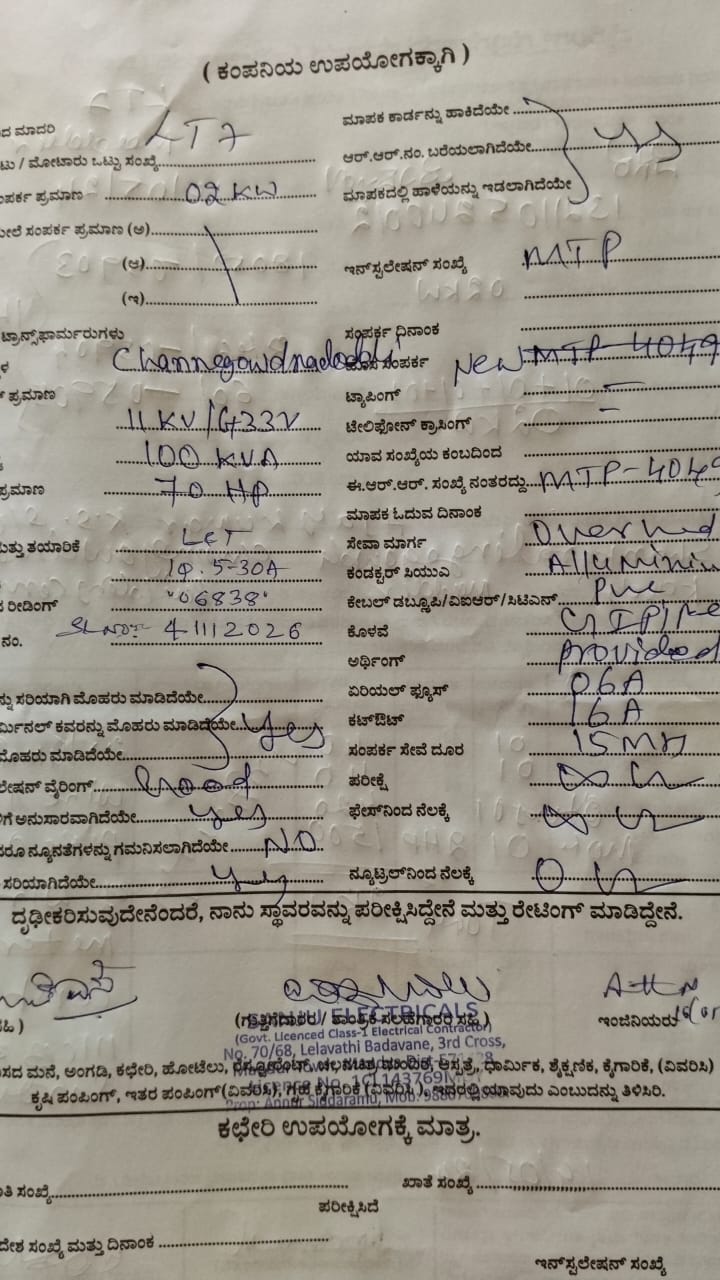 ( ಕಂಪನಿಯ ಉಪಯೋಗಕ್ಕಾಗಿ )
ದ ಮಾದರಿ LT7
ಟು / ಮೋಟಾರು ಒಟ್ಟು ಸಂಖ್ಯೆ
ಂಪರ್ಕ ಪ್ರಮಾಣ 02 KW
ಮೇಲೆ ಸಂಪರ್ಕ ಪ್ರಮಾಣ (ಅ)
(ಆ)
(ಇ)
ಟ್ರಾನ್ಸ್‌ಫಾರ್ಮರುಗಳು
ಳ Channegowdnadoddi
್ ಪ್ರಮಾಣ
11 KV/433V
100 KVA
ಪ್ರಮಾಣ 70 HP
ಮತ್ತು ತಯಾರಿಕೆ L&T
1φ. 5-30A
ರೀಡಿಂಗ್ "06838"
ನಂ. SL NO:- 41112026
ನ್ನು ಸರಿಯಾಗಿ ಮೊಹರು ಮಾಡಿದೆಯೇ
ರ್ಮಿನಲ್ ಕವರನ್ನು ಮೊಹರು ಮಾಡಿದೆಯೇ Yes
ಮೊಹರು ಮಾಡಿದೆಯೇ
ಲೇಷನ್ ವೈರಿಂಗ್ Good
ಗೆ ಅನುಸಾರವಾಗಿದೆಯೇ Yes
ದರೂ ನ್ಯೂನತೆಗಳನ್ನು ಗಮನಿಸಲಾಗಿದೆಯೇ NO
ಸರಿಯಾಗಿದೆಯೇ Yes
ಮಾಪಕ ಕಾರ್ಡನ್ನು ಹಾಕಿದೆಯೇ
ಆರ್.ಆರ್.ನಂ. ಬರೆಯಲಾಗಿದೆಯೇ Yes
ಮಾಪಕದಲ್ಲಿ ಹಾಳೆಯನ್ನು ಇಡಲಾಗಿದೆಯೇ
ಇನ್‌ಸ್ಟಲೇಷನ್ ಸಂಖ್ಯೆ MTP
ಸಂಪರ್ಕ ದಿನಾಂಕ
ಸಂಪರ್ಕ New MTP-4049
ಟ್ಯಾಪಿಂಗ್ –
ಟೆಲಿಫೋನ್ ಕ್ರಾಸಿಂಗ್ –
ಯಾವ ಸಂಖ್ಯೆಯ ಕಂಬದಿಂದ
ಈ.ಆರ್.ಆರ್. ಸಂಖ್ಯೆ ನಂತರದ್ದು MTP-4049
ಮಾಪಕ ಓದುವ ದಿನಾಂಕ
ಸೇವಾ ಮಾರ್ಗ Overhed
ಕಂಡಕ್ಟರ್ ಸಿಯುಎ Alluminiu
ಕೇಬಲ್ ಡಬ್ಲೂಪಿ/ವಿಐಆರ್/ಸಿಟಿಎಸ್ PVC
ಕೊಳವೆ GI PIPe
ಅರ್ಥಿಂಗ್ provided
ಏರಿಯಲ್ ಫ್ಯೂಸ್ 06A
ಕಟ್‌ಔಟ್ 16A
ಸಂಪರ್ಕ ಸೇವೆ ದೂರ 15 Mt
ಪರೀಕ್ಷೆ
ಫೇಸ್‌ನಿಂದ ನೆಲಕ್ಕೆ
ನ್ಯೂಟ್ರಲ್‌ನಿಂದ ನೆಲಕ್ಕೆ
ದೃಢೀಕರಿಸುವುದೇನೆಂದರೆ, ನಾನು ಸ್ಥಾವರವನ್ನು ಪರೀಕ್ಷಿಸಿದ್ದೇನೆ ಮತ್ತು ರೇಟಿಂಗ್ ಮಾಡಿದ್ದೇನೆ.
ಹಿ )
(ಗುತ್ತಿಗೆದಾರರ / ತಾಂತ್ರಿಕ ಸಲಹೆಗಾರರ ಸಹಿ )
ಇಂಜಿನಿಯರು
ELECTRICALS
(Govt. Licenced Class-1 Electrical Contractor)
No. 70/68, Lelavathi Badavane, 3rd Cross,
ಸದ ಮನೆ, ಅಂಗಡಿ, ಕಛೇರಿ, ಹೋಟೆಲು, ಆಸ್ಪತ್ರೆ, ಧಾರ್ಮಿಕ, ಶೈಕ್ಷಣಿಕ, ಕೈಗಾರಿಕೆ, (ವಿವರಿಸಿ)
ಕೃಷಿ ಪಂಪಿಂಗ್, ಇತರ ಪಂಪಿಂಗ್ (ವಿವರಿಸಿ), ಗೃಹ ಕೈಗಾರಿಕೆ (ವಿವರಿಸಿ ), ಇವರಲ್ಲಿ ಯಾವುದು ಎಂಬುದನ್ನು ತಿಳಿಸಿರಿ.
ಕಛೇರಿ ಉಪಯೋಗಕ್ಕೆ ಮಾತ್ರ.
ತಿ ಸಂಖ್ಯೆ
ಖಾತೆ ಸಂಖ್ಯೆ
ಪರೀಕ್ಷಿಸಿದೆ
ದೇಶ ಸಂಖ್ಯೆ ಮತ್ತು ದಿನಾಂಕ
ಇನ್‌ಸ್ಟಲೇಷನ್ ಸಂಖ್ಯೆ